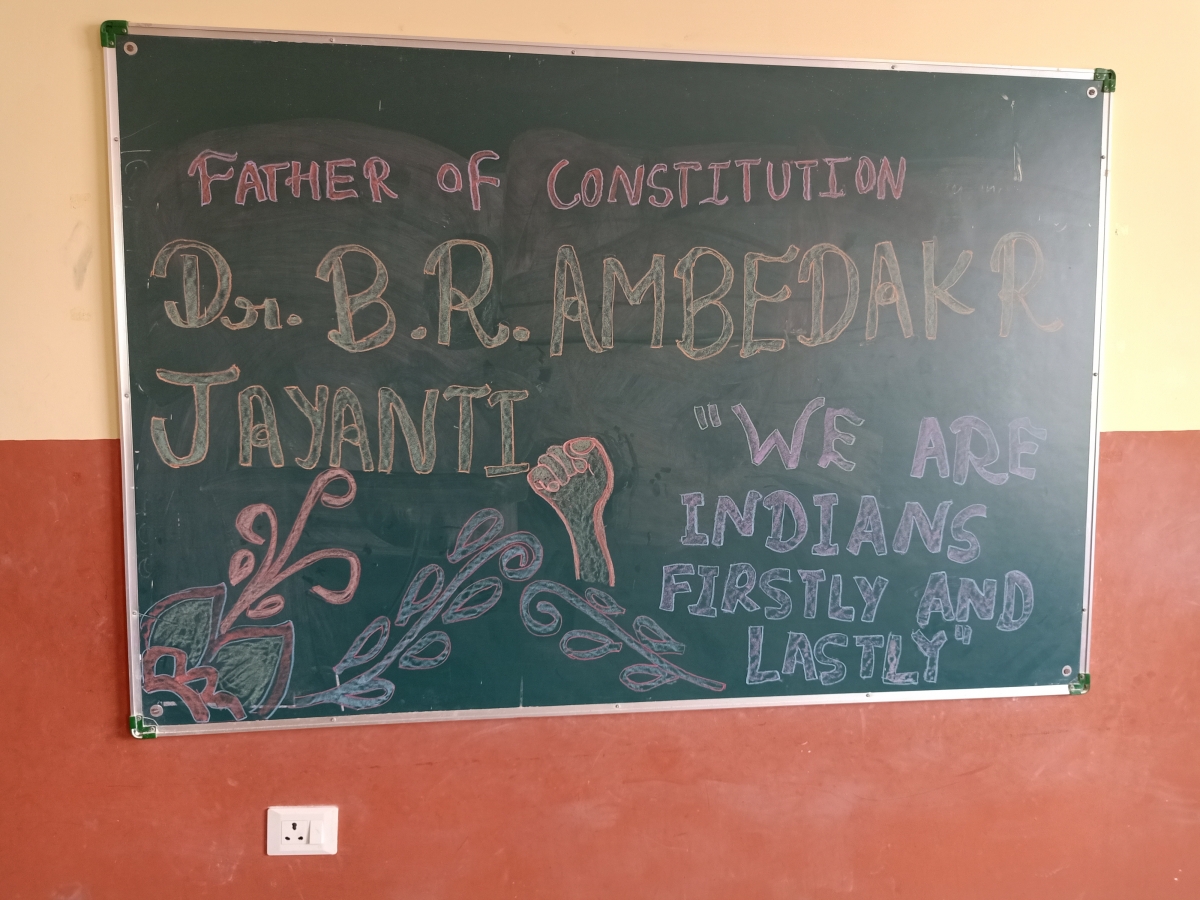 FATHER OF CONSTITUTION
Dr. B.R. AMBEDAKR
JAYANTI
"WE ARE
INDIANS
FIRSTLY AND
LASTLY"